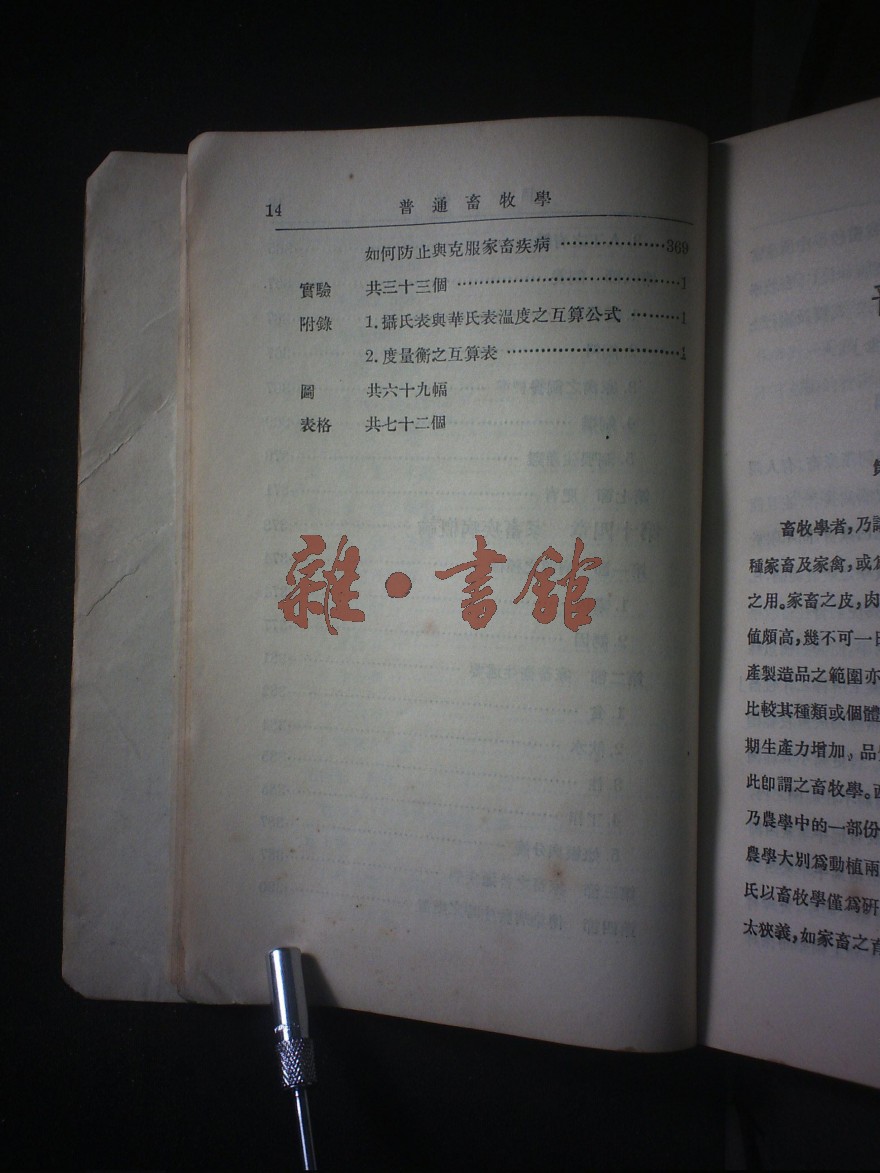 14 普通畜牧學
如何防止與克服家畜疾病 ………………369
實驗 共三十三個 ………………………………1
附錄 1.攝氏表與華氏表溫度之互算公式 ………1
2.度量衡之互算表 …………………………1
圖 共六十九幅
表格 共七十二個
雜·書館
畜牧學者,乃
種家畜及家禽,或
之用。家畜之皮,肉
值頗高,幾不可一
產製造品之範圍亦
比較其種類或個體
期生產力增加,品
此卽謂之畜牧學。
乃農學中的一部份
農學大別爲動植兩
氏以畜牧學僅爲研
太狹義,如家畜之